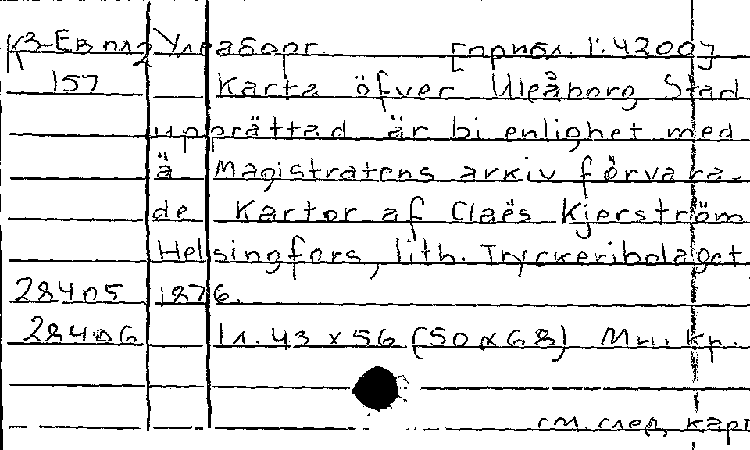 К3-Евпл2 Улеаборг. [прибл. 1:4200]
157 Karta öfver Uleåborg Stad
upprättad är bi enlighet med
ä Magistratens arkiv förvara-
de Kartor af Claës Kjerström
Helsingfors, lith. Tryckeribolaget,
28405 1876.
28406 1л. 43 x 56 (50 x 68) Мн. кр.
см. след. карт